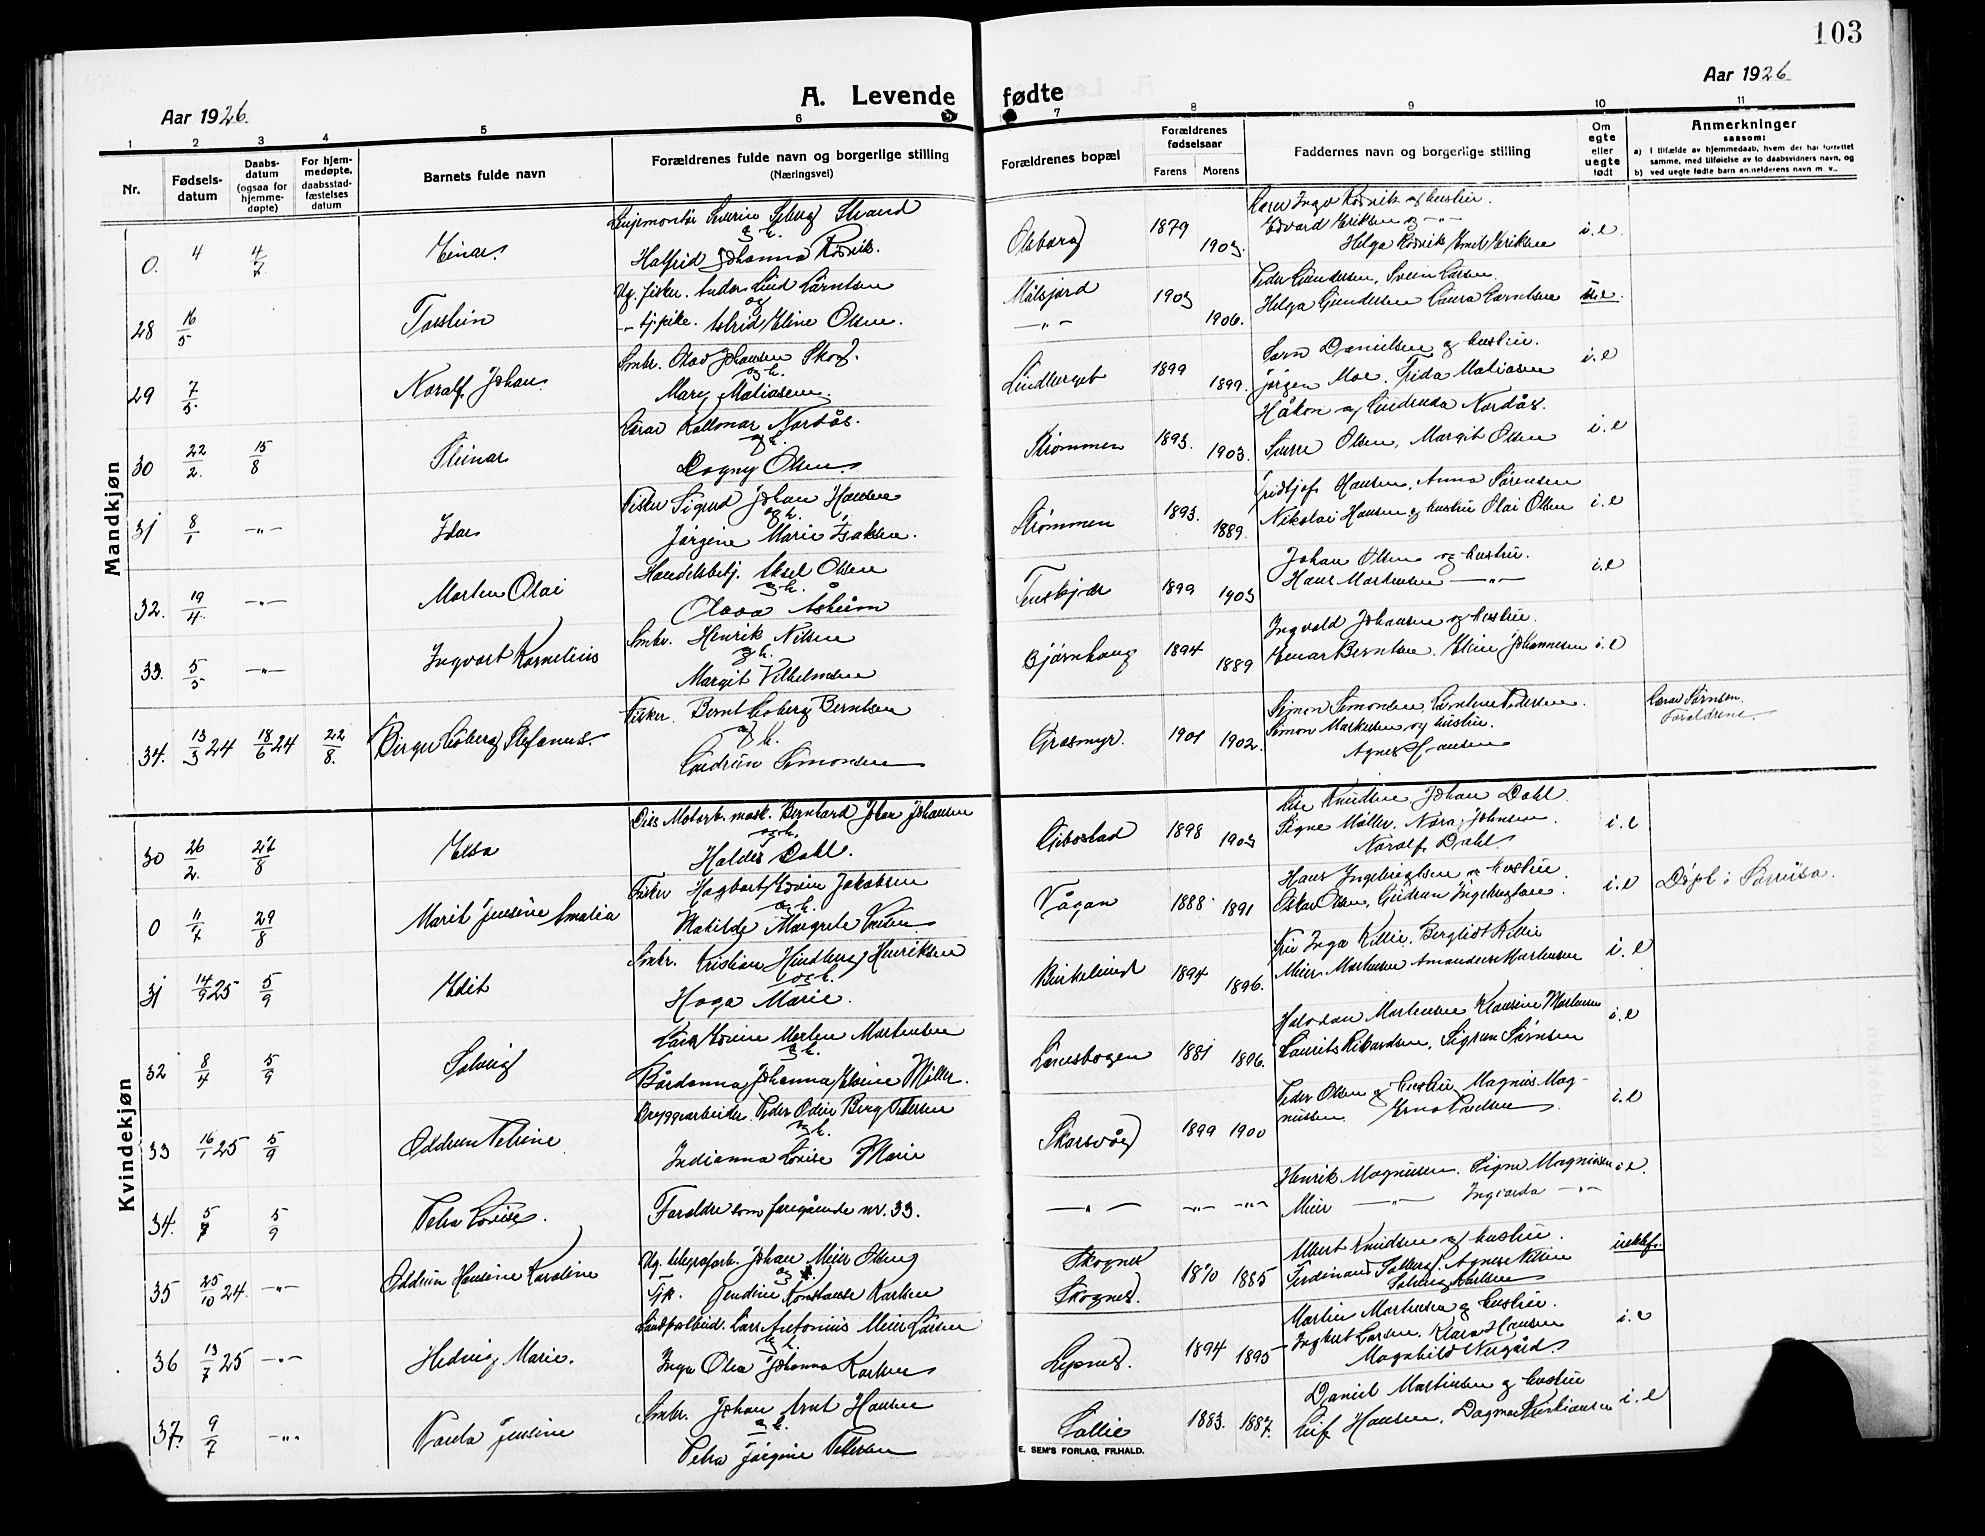 103
Aar 1926.
Aar 1926
A. Levende fødte
1 2 3 4 5 6 7 8 9 10 11
Nr.
Fødsels-
datum
Daabs-
datum
(ogsaa for
hjemme-
døpte)
For hjem-
medøpte,
daabsstad-
fæstelses
datum
Barnets fulde navn
Forældrenes fulde navn og borgerlige stilling
(Næringsvei)
Forældrenes bopæl
Forældrenes
fødselsaar
Farens Morens
Faddernes navn og borgerlige stilling
Om
egte
eller
uegte
født
Anmerkninger
saasom:
a) I tilfælde av hjemmedaab, hvem der har forrettet
samme, med tilføielse av to daabsvidners navn, og
b) ved uegte fødte barn anmelderens navn m. v.
Mandkjøn
0. 4 4/7 Einar
Strand
og h.
Halfrid Johanna Rødvik.
1879 1903
Edvard Eriksen og -"-
Helga Rødvik Emil Eriksen
i.e
28 16/5 Torstein
Ug. fisker. Anders Lind Larntsen
og
-"- tj.pike. Astrid Eline Olsen.
Målsjord
-"-
1903 1906.
Peder Gundersen, Svein Larsen
Helga Gundersen Laura
u.e.
29 7/5 Noralf Johan
Smbr. Olav Johansen Skog.
og h.
Mary Matiasen
Lindberget 1899 1899.
Sørn Danielsen og hustru.
Jørgen Moe. Frida Matiasen
i.e
30 22/2. 15/8 Steinar
Nordås.
og h.
Dagny Olsen
Strømmen 1893. 1903.
Håkon og Nordås.
Olsen, Margit Olsen
i.e
31 8/1 -"- Idar
Fisker Sigurd Johan Hansen
og h.
Jørgine Marie Isaksen.
Strømmen 1893. 1889.
Fridtjof Hansen, Anna Sørensen
Nikolai Hansen og hustru Olai Olsen
i.e
32. 19/4. -"- Morten Olai
Handelsbetj. Aksel Olsen
og h.
Olava Asheim
Tenskjær 1899 1903
Johan Olsen og hustru.
Hans Martinsen -"-
i.e
33. 5/5 -"- Ingvart Kornelius
Smbr. Henrik Nilsen
og h.
Margit Vilhelmsen
Bjørnhaug 1894 1889
Ingvald Johansen og hustru.
Einar Berntsen. Eline Johannesen
i.e
34. 13/3 24 18/6 24 22/8. Birger Soberg Stefanus.
Fisker. Bernt Soberg Berntsen
og h.
Gudrun Simonsen
Grasmyr. 1901 1902.
Simon Simonsen. Pedersen.
Simon Markussen og hustru.
Agnes Hansen
Sørnsen.
Foreldrene
Kvindekjøn
30 26/2. 22/8 Elsa
Diss Motorb. mask. Bernhard Johansen
og h.
Haldis Dahl.
Gibostad 1898 1903
Lise Knudsen. Johan Dahl.
Signe Møller. Nora Johnsen.
Noralf Dahl
i.e
0 11/7 29/8 Marit Jensine Amalia
Fisker Hagbart Edvin Jakobsen
og h.
Matilde Margrete
Vågan 1888 1891
Hans Ingebrigtsen og hustru.
Oskar Olsen, Gudrun Ingebrigtsen.
i.e Døpt i Sørreisa.
31 14/9 25 5/9 Edit
Smbr. Kristian Hindberg Henriksen
og h.
Haga Marie.
Birkelund 1894 1896.
Fru Inga Killie. Bergliot Killie
Meier Martensen Amandus Martensen
i.e
32 8/4 5/9 Solveig
Edvin Morten Martensen
og h.
Bårdanna Johanna Elvine Møller.
Lanesbogen 1881 1896.
Halvdan Martensen Klausine Martensen
Laurits Rikardsen, Sigrun Sørnsen
i.e
33 16/1 25 5/9 Oddrun Petrine
Bryggearbeider. Peder Odin Berg Petersen
og h.
Indianna Lovise Marie
Skarsvåg 1899 1900
Peder Olsen og hustru Magnus Mag-
nussen. Erna Paulsen
i.e
34. 5/7 5/9 Petra Lovise.
Foreldre som foregående nr. 33.
-"- -"- -"-
Henrik Magnussen. Signe Magnussen
Meier -"- Ingvarda -"-
i.e.
35 25/10 24. -"- Oddrun Hansine Karoline
Ug. telegrafarb. Johan Meier
og
Tjp. Jendine Konstanse Karlsen
Skognes
Skognes.
1870 1885
Albert Knudsen og hustru.
Ferdinand Solberg. Agnes Nilsen
Solveig Karlsen
uektef.
36 13/7 25 -"- Hedvig Marie.
Lars Antonius Meier Larsen
og h.
Inga Olea Johanna Karlsen
Lysnes. 1894 1895
Martin Martinsen og hustru.
Ingbert Larsen. Klara Hansen
Magnhild Nergård
i.e
37. 9/7 -"- Paula Jensine
Smbr. Johan Arnt Hansen
og h.
Petra Jørgine Pettersen
Lallie 1883. 1887.
Daniel Martinsen og hustru
Leif Hansen, Dagmar Kristiansen
i.e
E. SEM'S FORLAG, FR.HALD.